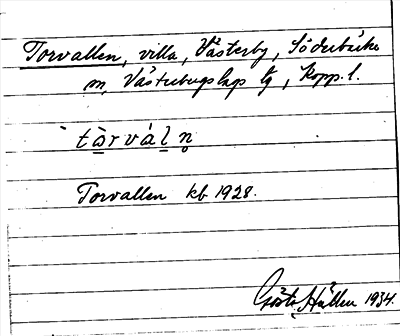 Torvallen, villa, Västerby, Söderbärke
sn, Västerbergslags tg, Kopp. l.
tòrvál̥n̥
Torvallen kb 1928.
Gösta Hallen 1934.